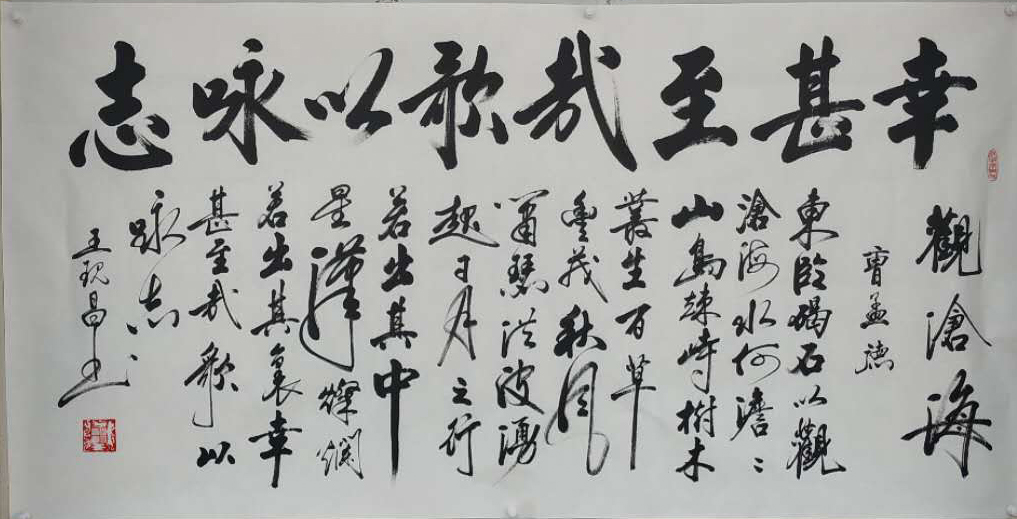 幸甚至哉歌以咏志
觀滄海
曹孟德
東臨碣石以觀
滄海水何澹〻
山島竦峙樹木
叢生百草
豊茂秋風
蕭瑟洪波湧
起日月之行
若出其中
星漢燦爛
若出其裏幸
甚至哉歌以
咏志
王現昌书